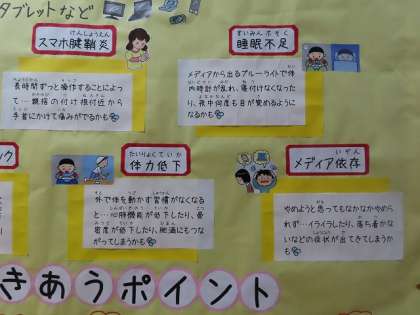 タブレットなど
けんしょうえん
スマホ腱鞘炎
長時間ずっと操作することによっ
て…親指の付け根付近から
手首にかけて痛みがでるかも
すいみんぶそく
睡眠不足
メディアから出るブルーライトで体
内時計が乱れ、寝付けなくなった
り、夜中何度も目が覚めるように
なるかも
ック
たいりょくていか
体力低下
外で体を動かす習慣がなくなる
と…心肺機能が低下したり、骨
密度が低下したり、肥満にもつな
がってしまうかも
いぞん
メディア依存
やめようと思ってもなかなかやめら
れず…イライラしたり、落ち着かな
いなどの症状が出てきてしまうか
も
きあうポイント